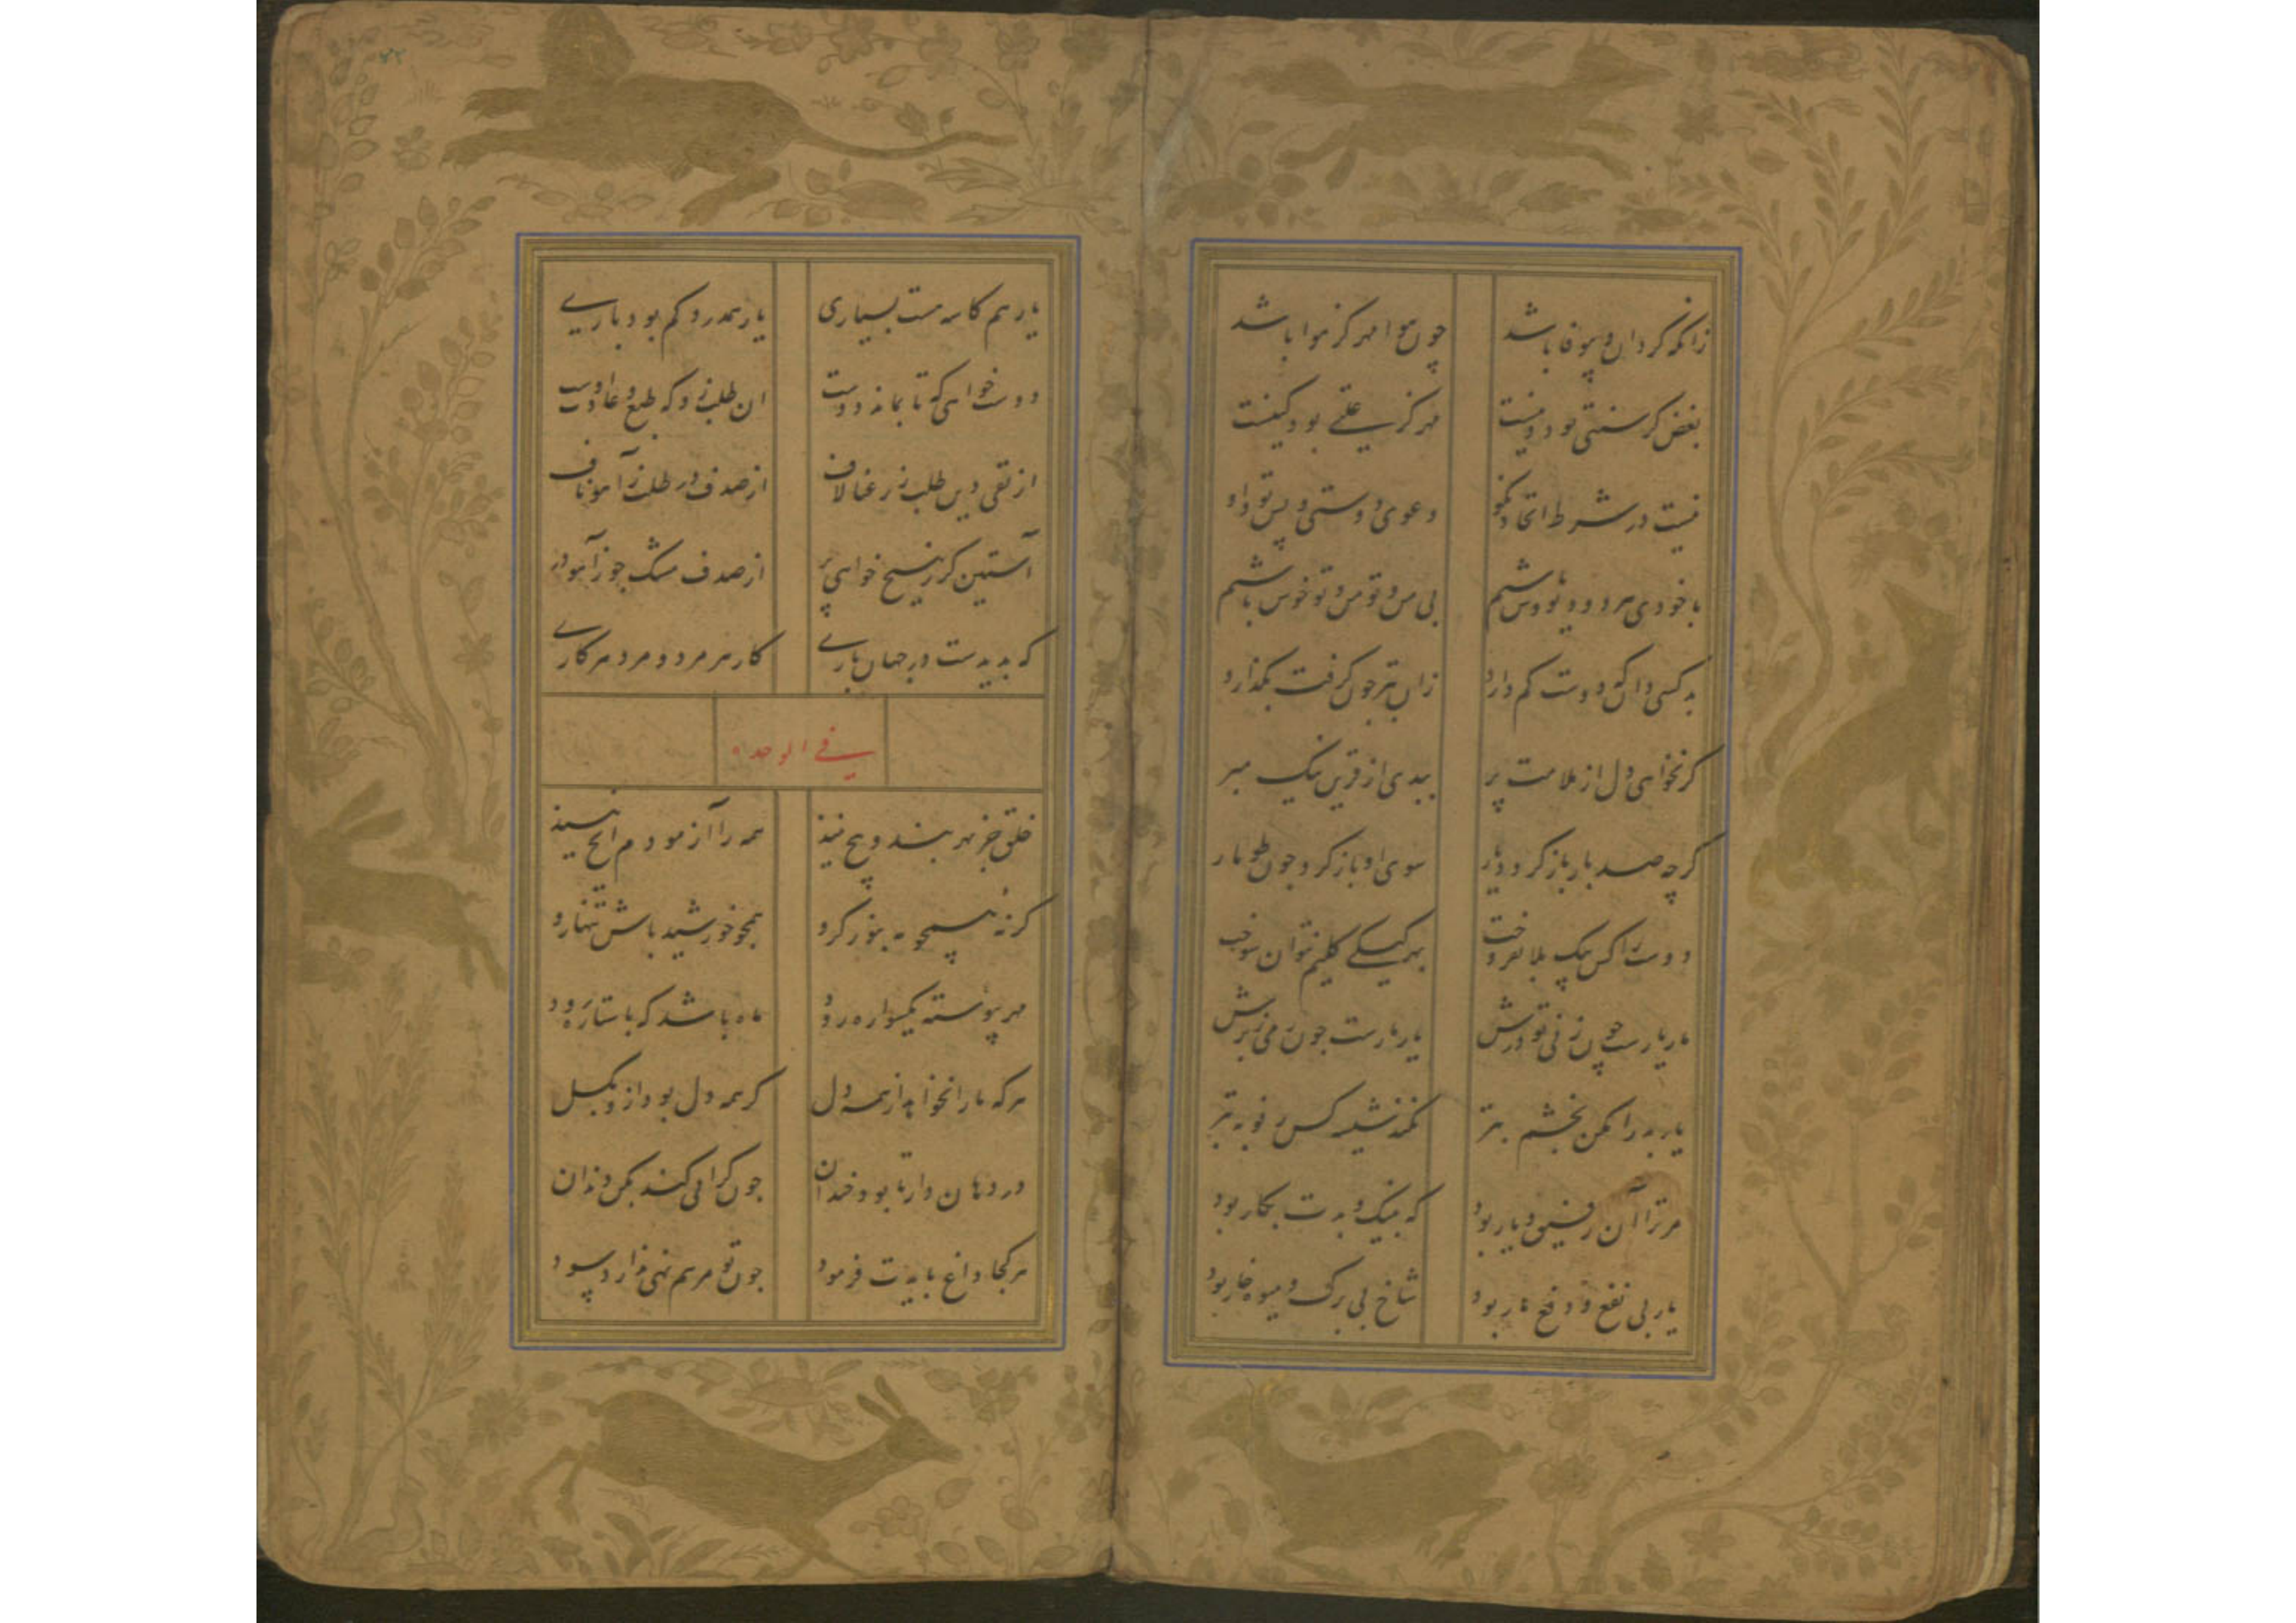 زانکه گردان و بیوفا باشد چون هوا مهر کز هوا باشد
بغض کز سنتی بود دینست مهر کز علتی بود کینست
نیست در شرط اتحاد نکو دعوی دوستی و پس تو و او
با خودی هر دو دیو وش باشیم بی من و تو من و تو خوش باشیم
بد کسی دان که دوست کم دارد زان بتر چون گرفت بگذارد
گر نخواهی دل از ملامت پر ببدی از قرین نیک مبر
گرچه صد بار باز گردد یار سوی او باز گرد چون طومار
دوست را کس بیک بلا نفروخت بهر کیکی گلیم نتوان سوخت
مار یارست چون زنی تو درش یار مارست چون
یار بد را مکن بخشم بتر
مر ترا آن رفیق و یار بود که بنیک و بدت بکار بود
یار بی نفع و دفع مار بود شاخ بی برگ و میوه خار بود
۴۲
یار هم کاسه هست بسیاری یار همدرد کم بود باری
دوست خواهی که تا بماند دوست آن طلب زو که طبع و عادت اوست
از تقی دین طلب ز رعنا لاف از صدف در طلب ز آهو ناف
آستین گر ز هیچ خواهی پر از صدف مشک جو ز آهو در
که بدیدست در جهان باری کار هر مرد و مرد هر کاری
فی الوحده
خلق جز مهر بند و پیچ نیند همه را آزمودم ایچ نیند
گر نه همچو مه بنور گرو همچو خورشید باش تنها رو
مهر پیوسته یکسواره رود ماه باشد که با ستاره رود
هرکه ما را نخواهد از همه دل گر همه دل بود ازو بگسل
در دهان دار تا بود خندان چون گرانی کند بکن دندان
هر کجا داغ بایدت فرمود چون تو مرهم نهی ندارد سود